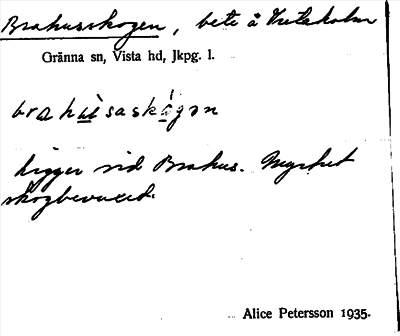 Brahusskogen, bete å Vretaholm
Gränna sn, Vista hd, Jkpg. l.
brahùsaskógən
ligger vid Brahus. Mycket
skogbevuxed.
Alice Petersson 1935.